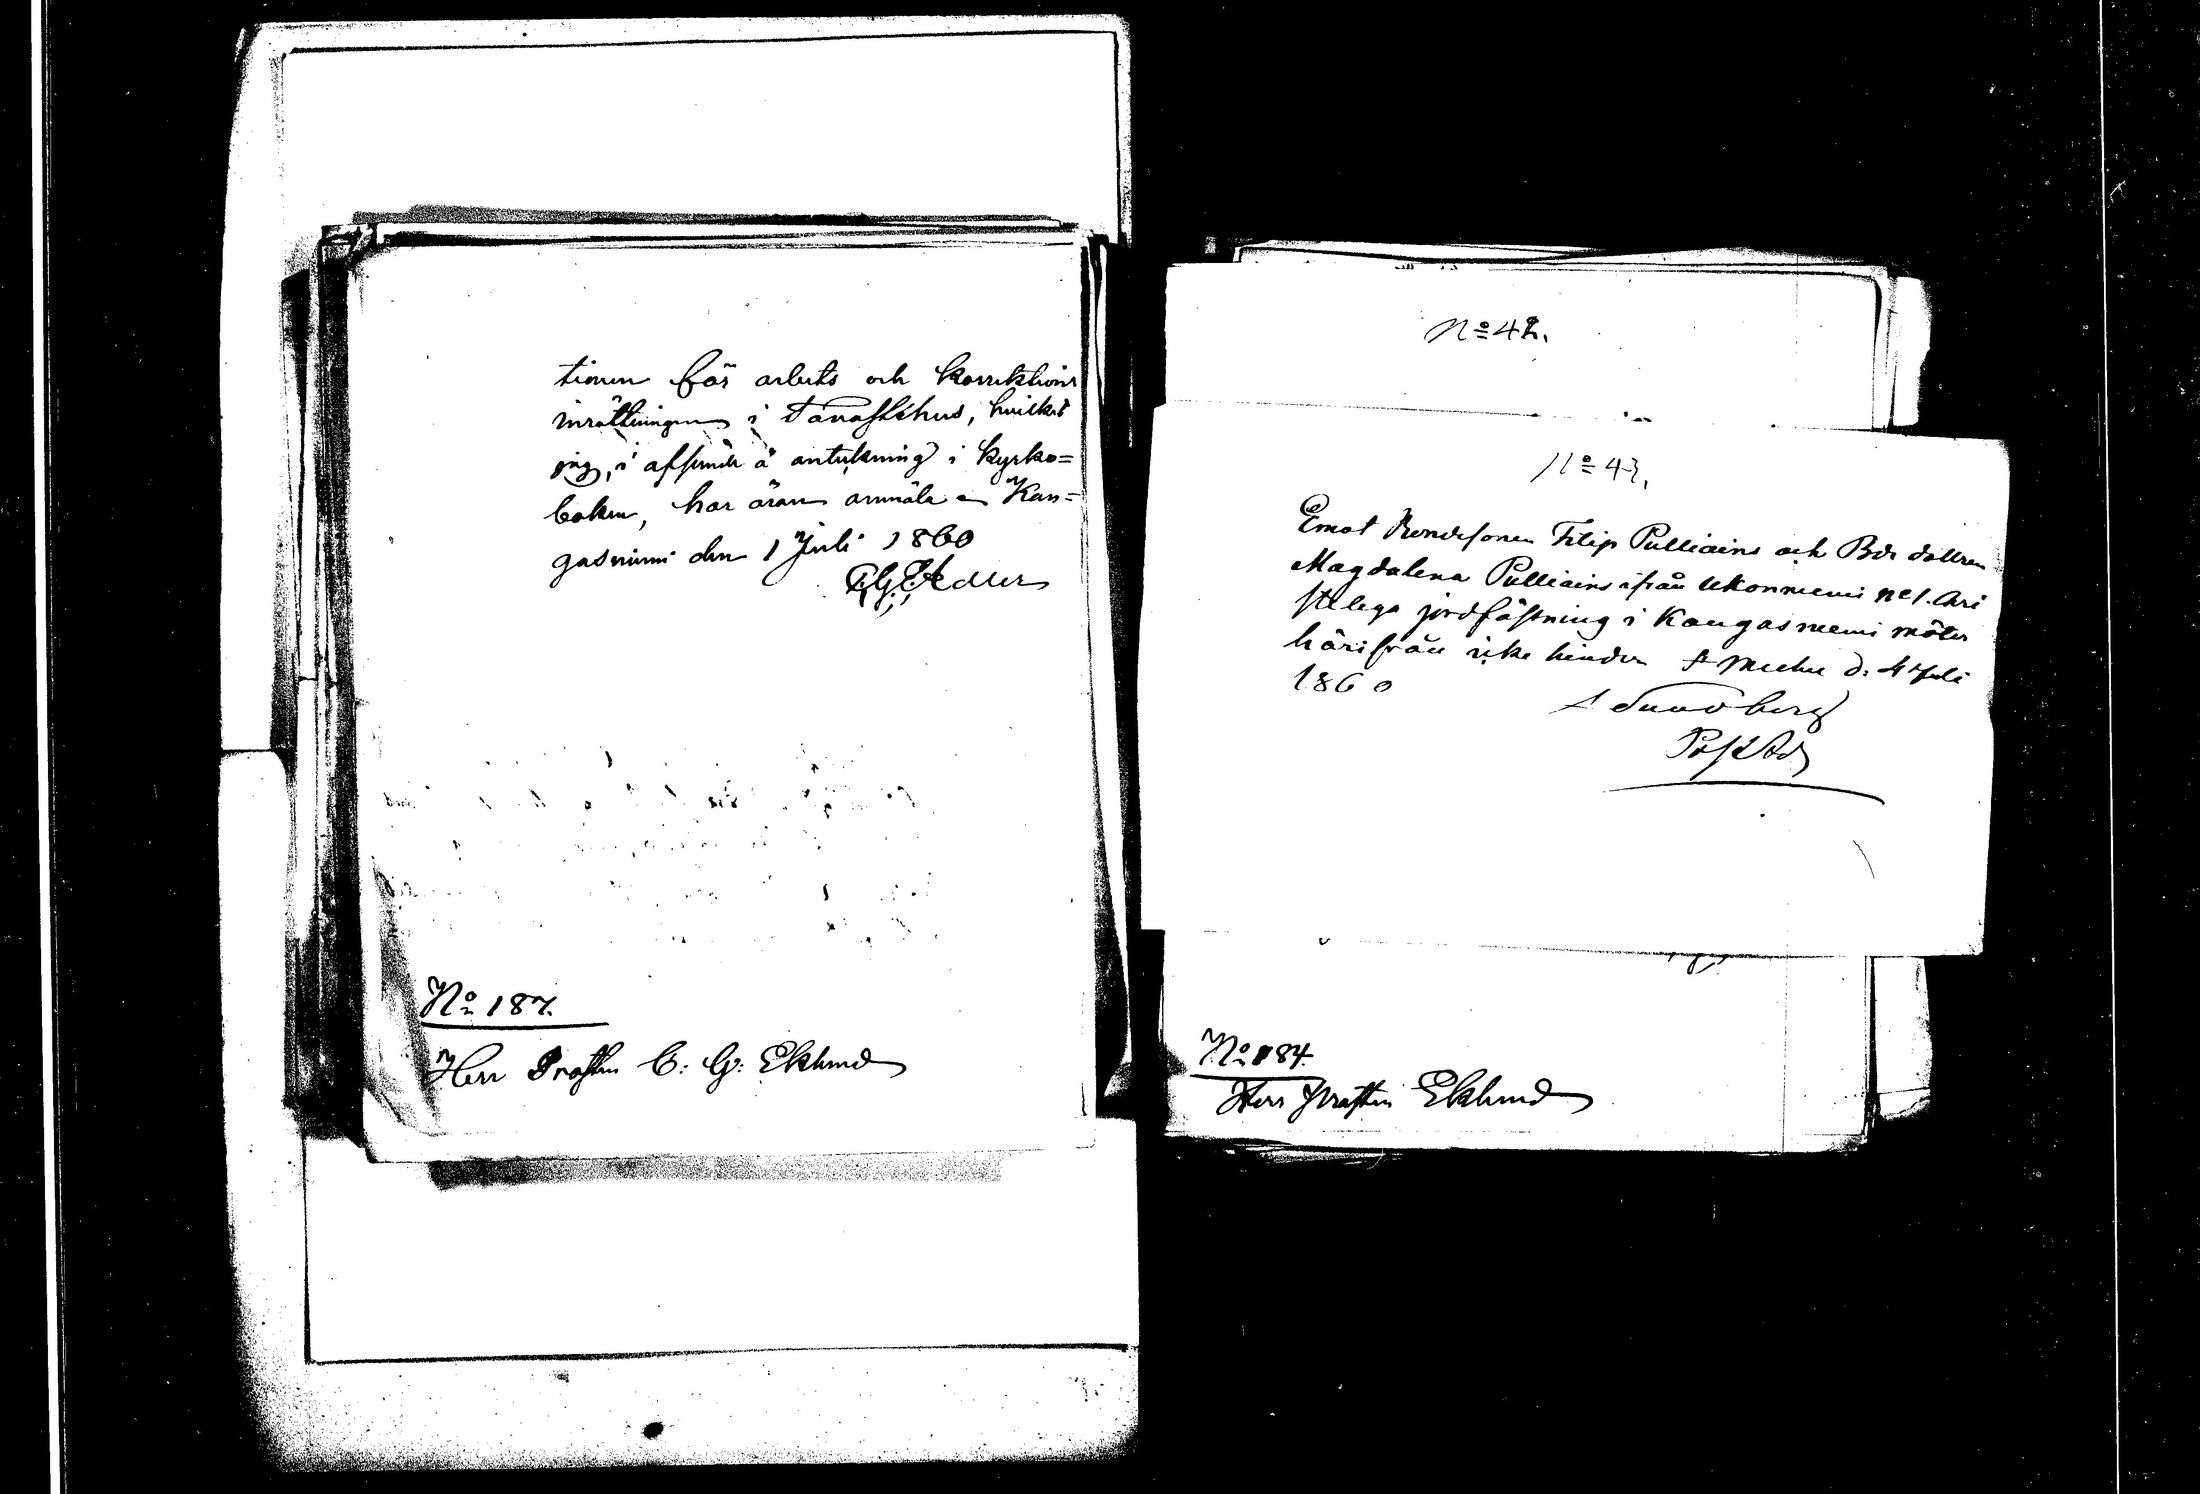 tionen för arbets och Korrektions
inrättningen i Tavastehus, hvilket
jag, i afseende å anteckning i Kyrko=
boken, har äran anmäla. Kan=
gasniemi den 1 Juli 1860
C. G. Adler
No 187.
Herr Prosten C: G: Eklund
No 42.
No 43.
Emot Bondesonen Filip Pulliains och Bde dottren
Magdalena Pulliains ifrån Ukonniemi No 1. Chri
steliga jordfästning i Kangasniemi möter
härifrån icke hinder St Michel d: 4 Juli
1860
A Sundberg
No 184.
Herr Prosten Eklund